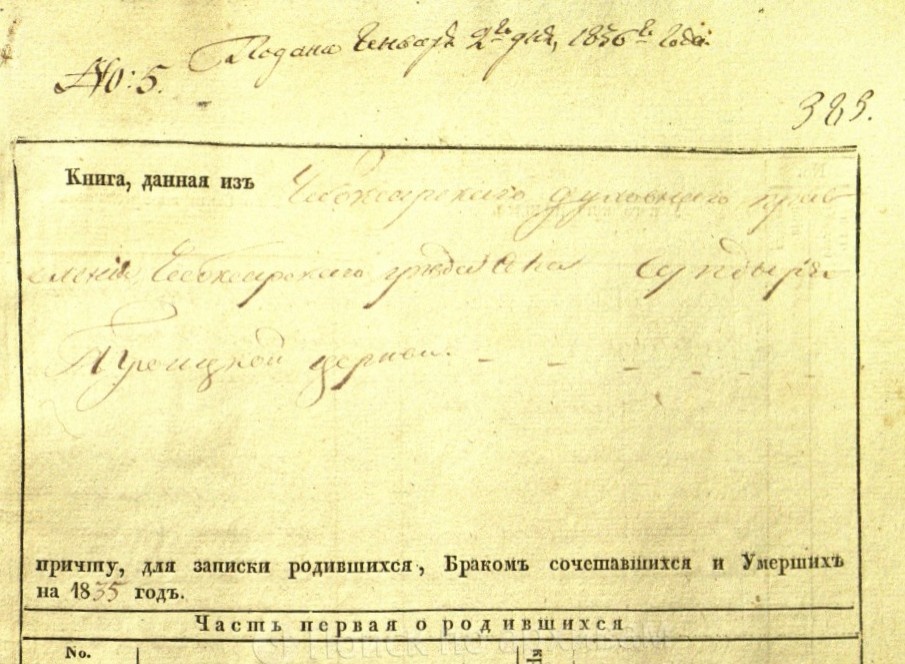 Подана Генваря 2го дня, 1836го года.
No: 5.
385.
Книга, данная изъ Чебоксарскаго духовнаго прав
ленія Чебоксарскаго уѣзда села Сундыря
Троицкой церкви.
причту, для записки родившихся, Бракомъ сочетавшихся и Умершихъ
на 1835 годъ.
Часть первая о родившихся
No.